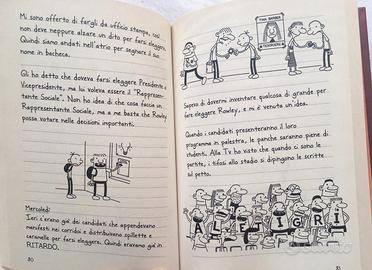 Mi sono offerto di fargli da ufficio stampa, così
non deve neppure alzare un dito per farsi eleggere.
Quindi siamo andati nell'atrio per segnare il suo
nome in bacheca.
Gli ho detto che doveva farsi eleggere Presidente o
Vicepresidente, ma lui voleva essere il "Rappresen-
tante Sociale". Non ho idea di che cosa faccia un
Rappresentante Sociale, ma a me basta che Rowley
possa votare nelle decisioni importanti.
Mercoledì
Ieri c'erano già dei candidati che appendevano
manifesti nei corridoi e distribuivano spillette e
caramelle per farsi eleggere. Quindi eravamo già in
RITARDO.
80
TINA BARBER
TESORIERE
Sapevo di dovermi inventare qualcosa di grande per
fare eleggere Rowley, e mi è venuta un'idea.
Quando i candidati presenteranno il loro
programma in palestra, le panche saranno piene di
studenti. Alla Tv ho visto che quando ci sono le
partite, i tifosi allo stadio si dipingono le scritte
sul petto.
ALLEGRI